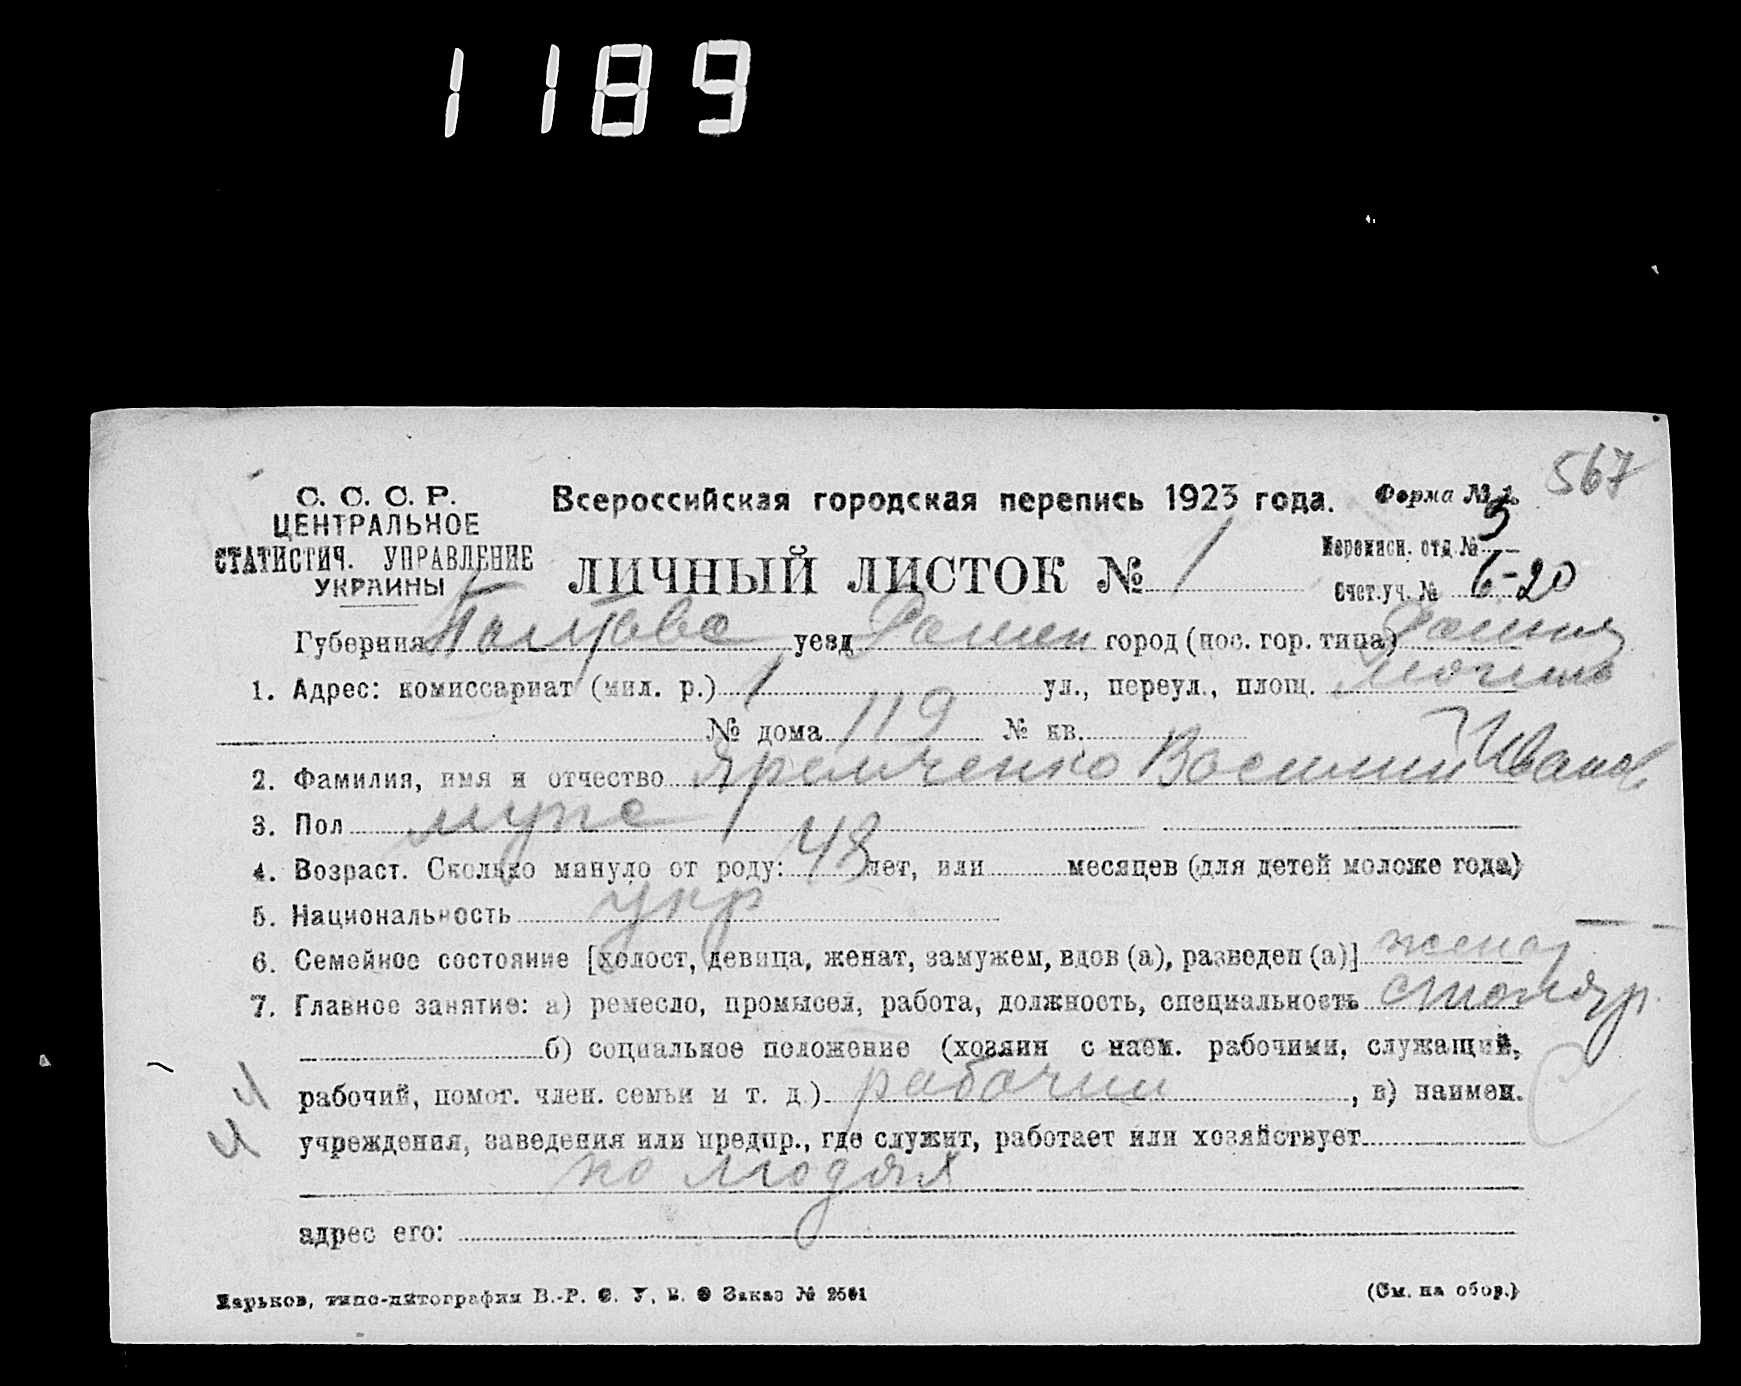 1189
567
С. С. С. Р.
ЦЕНТРАЛЬНОЕ
СТАТИСТИЧ. УПРАВЛЕНИЕ
УКРАИНЫ
Всероссийская городская перепись 1923 года.
Форма № 1.
ЛИЧНЫЙ ЛИСТОК № 1
Переписн. отд. № 5
Счет. уч. № 6-20
Губерния Полтава уезд Ромен город (пос. гор. типа) Ромны
1. Адрес: комиссариат (мил. р.) 1 ул., переул., площ.
№ дома 119 № кв.
2. Фамилия, имя и отчество Яремченко Василий Иванов
3. Пол мужс
4. Возраст. Сколько минуло от роду: 48 лет, или месяцев (для детей моложе года)
5. Национальность укр
6. Семейное состояние [холост, девица, женат, замужем, вдов (а), разведен (а)] женат
7. Главное занятие: а) ремесло, промысел, работа, должность, специальность столяр.
б) социальное положение (хозяин с наем. рабочими, служащий,
рабочий, помог. член. семьи и т. д.) рабочий, в) наимен.
учреждения, заведения или предпр., где служит, работает или хозяйствует
по людях
адрес его:
Харьков, типо-литография В.-Р. С. У. В. О Заказ № 2501
(См. на обор.)